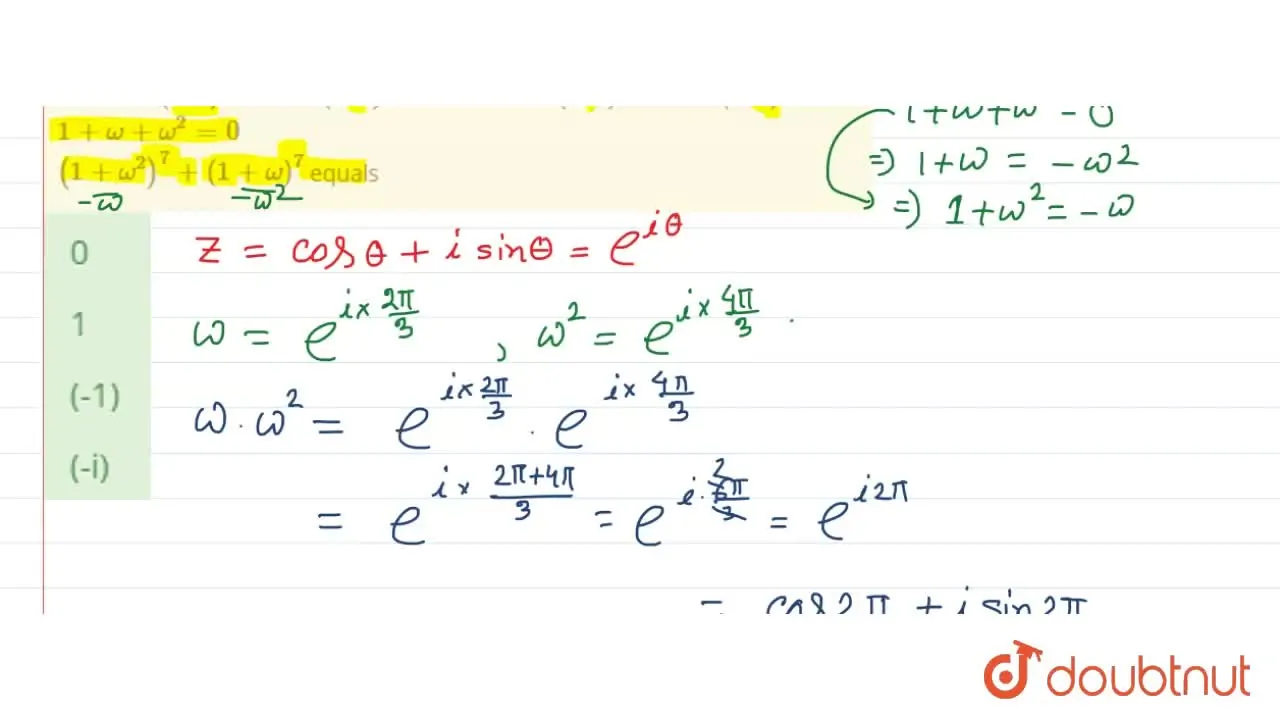 1+ω+ω - 0
1 + ω + ω² = 0
⇒) 1+ω = -ω²
(1 + ω²)⁷ + (1 + ω)⁷ equals
-ω -ω²
⇒) 1+ω² = -ω
0
z = cosθ + i sinθ = e^{iθ}
1
ω = e^{i×2π/3} , ω² = e^{i×4π/3} .
(-1)
ω·ω² = e^{i×2π/3} · e^{i×4π/3}
(-i)
= e^{i×(2π+4π)/3} = e^{i·6π/3} 2 = e^{i2π}
= cos2π + i sin2π
doubtnut